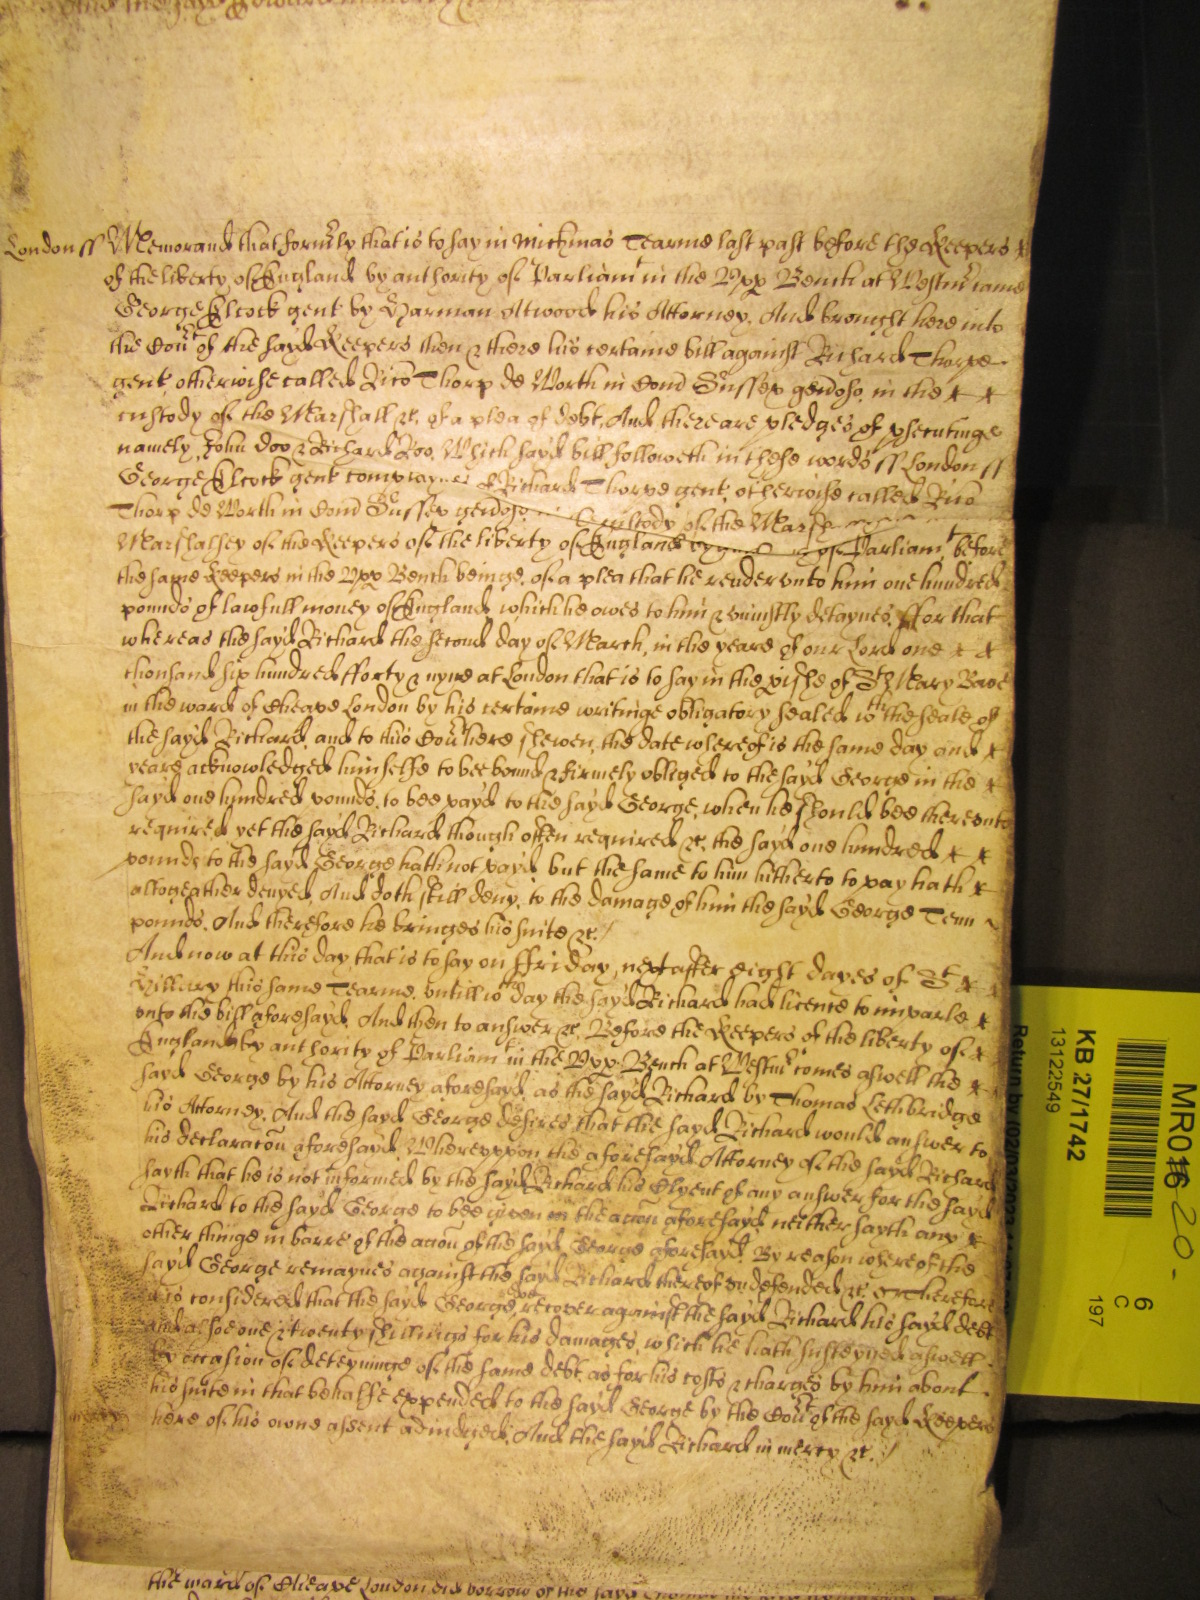 London ss Memorand that form'ly that is to say in Mich'mas Tearme last past before the Keepers
of the liberty of England by authority of Parliamt in the Upp Bench at Westm' came
George Elcock gent by Harman Atwood his Attorney. And brought here into
the Court of the sayd Keepers then & there his certaine bill against Richard Thorpe
gent otherwise called Rico Thorp de Worth in Com Sussex genoso, in the
custody of the Marshall &c. of a plea of debt, And there are pledges of psecutinge
namely, John Doo & Richard Roo. Which sayd bill followeth in these words ss London ss
George Elcock gent complaynes of Richard Thorpe gent, otherwise called Rico
Thorp de Worth in Com Sussex genoso, custody of the Marsh
Marshalsey of the Keepers of the liberty of England of Parliamt before
the same Keepers in the Upp Bench beinge, of a plea that he render unto him one hundred
pounds of lawfull money of England, which he owes to him & uniustly detaynes. ffor that
whereas the sayd Richard the second day of March, in the yeare of our Lord one
thousand six hundred fforty & nyne at London that is to say in the pishe of St Mary Bowe
in the ward of Cheape London by his certaine writinge obligatory sealed wth the seale of
the sayd Richard, and to this Court here shewen, the date whereof is the same day and
yeare acknowledged himselfe to bee bound & firmely obliged to the sayd George in the
sayd one hundred pounds, to bee payd to the sayd George, when he should bee thereunto
required yet the sayd Richard though often required &c. the sayd one hundred
pounds to the sayd George hath not payd, but the same to him hitherto to pay hath
altogeather denyed, And doth still deny, to the damage of him the sayd George Tenn
pounds. And therefore he bringes his suite &c.
And now at this day, that is to say on ffriday, next after eight dayes of St
Hillary this same Tearme. untill wch day the sayd Richard had licence to imparle
unto the bill aforesayd. And then to answer &c. Before the Keepers of the liberty of
England by authority of Parliamt in the Upp Bench at Westm' comes aswell the
sayd George by his Attorney aforesayd, as the sayd Richard by Thomas Lethbridge
his Attorney. And the sayd George desires that the sayd Richard would answer to
his declaracon aforesayd. Whereuppon the aforesayd Attorney of the sayd Richard
sayth that he is not informed by the sayd Richard his Clyent of any answer for the sayd
Richard to the sayd George to bee given in the accon aforesayd neither sayth any
other thinge in barre of the accon of the sayd George aforesayd. By reason whereof the
sayd George remaynes against the sayd Richard thereof undefended &c. Therefore
it is considered that the sayd George doe recover against the sayd Richard his sayd debt
and alsoe one & twenty shillings for his damages, which he hath susteyned aswell
by occasion of deteyninge of the same debt, as for his costs & charges by him about
his suite in that behalfe expended to the sayd George by the Court of the sayd Keepers
here of his owne assent adiudged. And the sayd Richard in mercy &c.
the ward of Cheape London did borrow of the sayd
MR0
20.
KB 27/1742
13122549
6
C
197